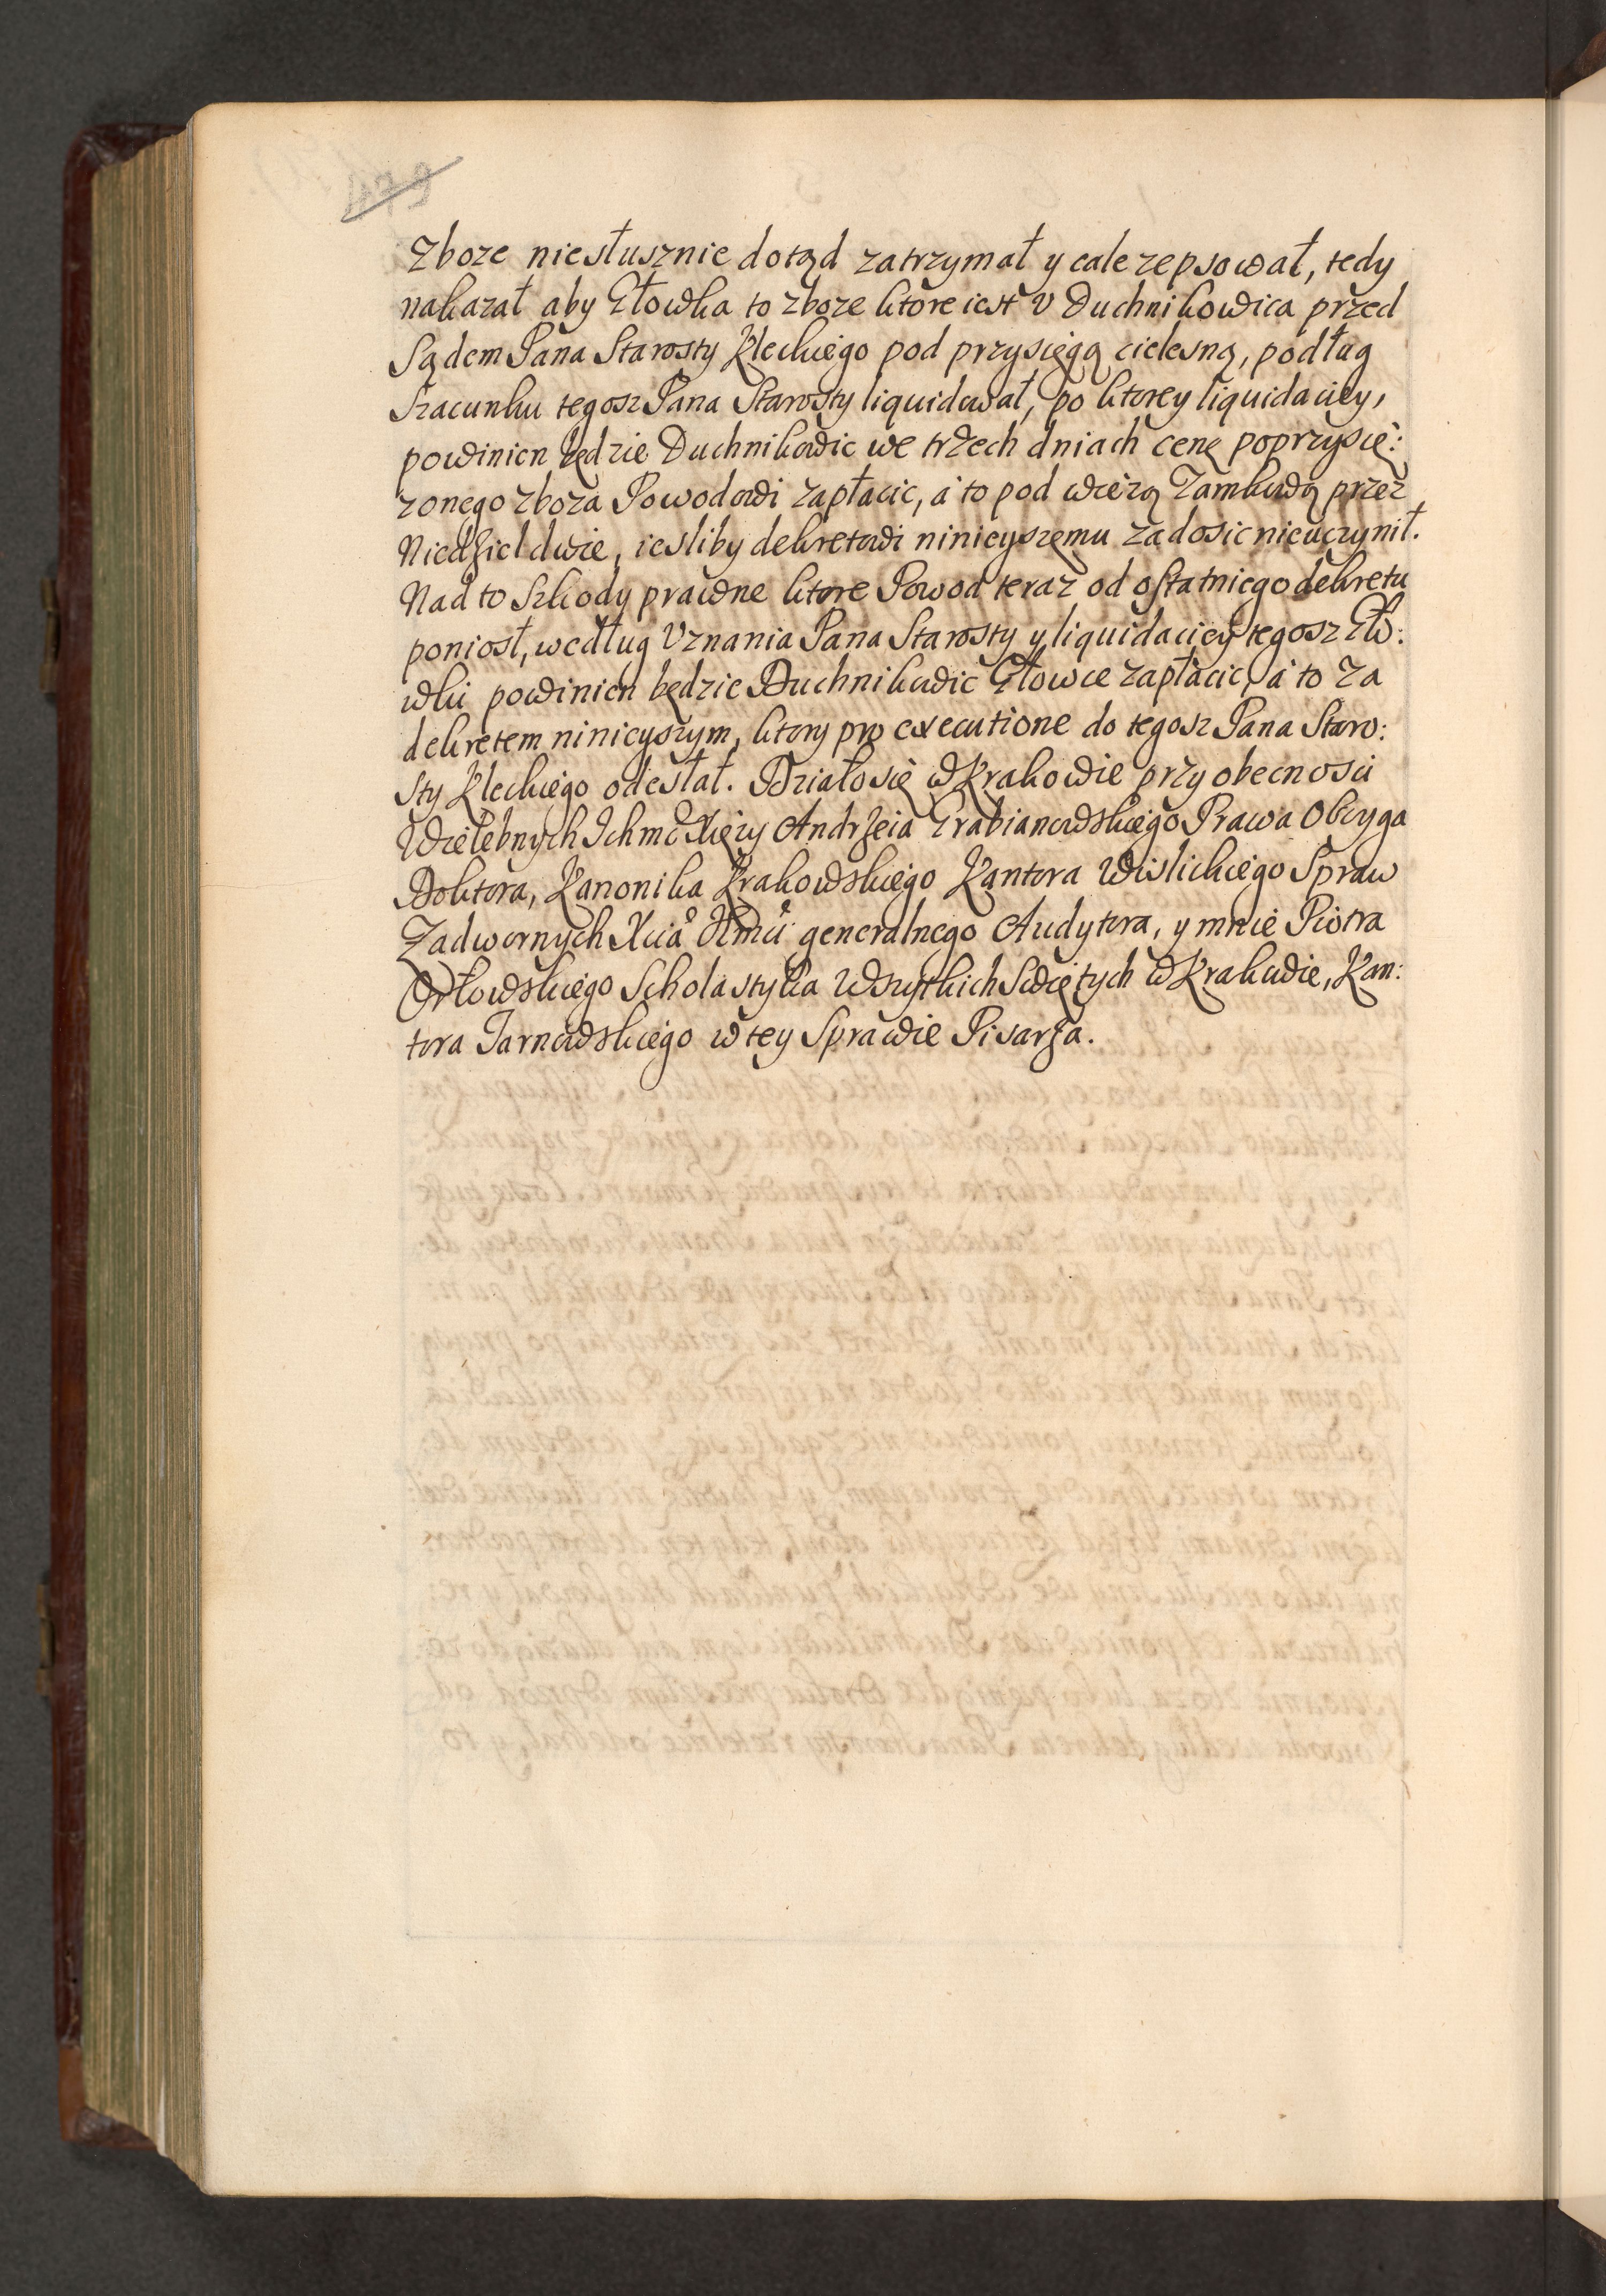 Zboze niesłusznie dotąd zatrzymał y cale zepsował, tedy
nakazał aby Głowka to zboze ktore iest v Duchnikowica przed
Sądem Pana Starosty Kleckiego pod przysięgą cielesną, podług
szacunku tegosz Pana Starosty liquidował, po ktorey liquidaciey,
powinien będzie Duchnikowic we trzech dniach cenę poprzysię:
zonego zboza Powodowi zapłacic, a to pod wiezą Zamkową przez
Niedziel dwie, iesliby dekretowi ninieyszemu zadosic nieuczynił.
Nad to szkody prawne ktore Powod teraz od ostatniego dekretu
poniosł, według Vznania Pana Starosty y liquidaciey tegosz Gło:
wki powinien będzie Duchnikowic Głowce zapłacic, a to za
dekretem ninieyszym, ktory pro executione do tegosz Pana Staro:
sty Kleckiego odesłał. Działosię w Krakowie przy obecnosci
Wielebnych Ichmć Xięzy Andrzeia Grabianowskiego Prawa Oboyga
Doktora, Kanonika Krakowskiego Kantora Wislickiego Spraw
Zadwornych Xcia generalnego Audytora, y mnie Piotra
Orłowskiego Scholastyka Wszytkich Swiętych w Krakowie, Kan:
tora Tarnowskiego w tey Sprawie Pisarza.